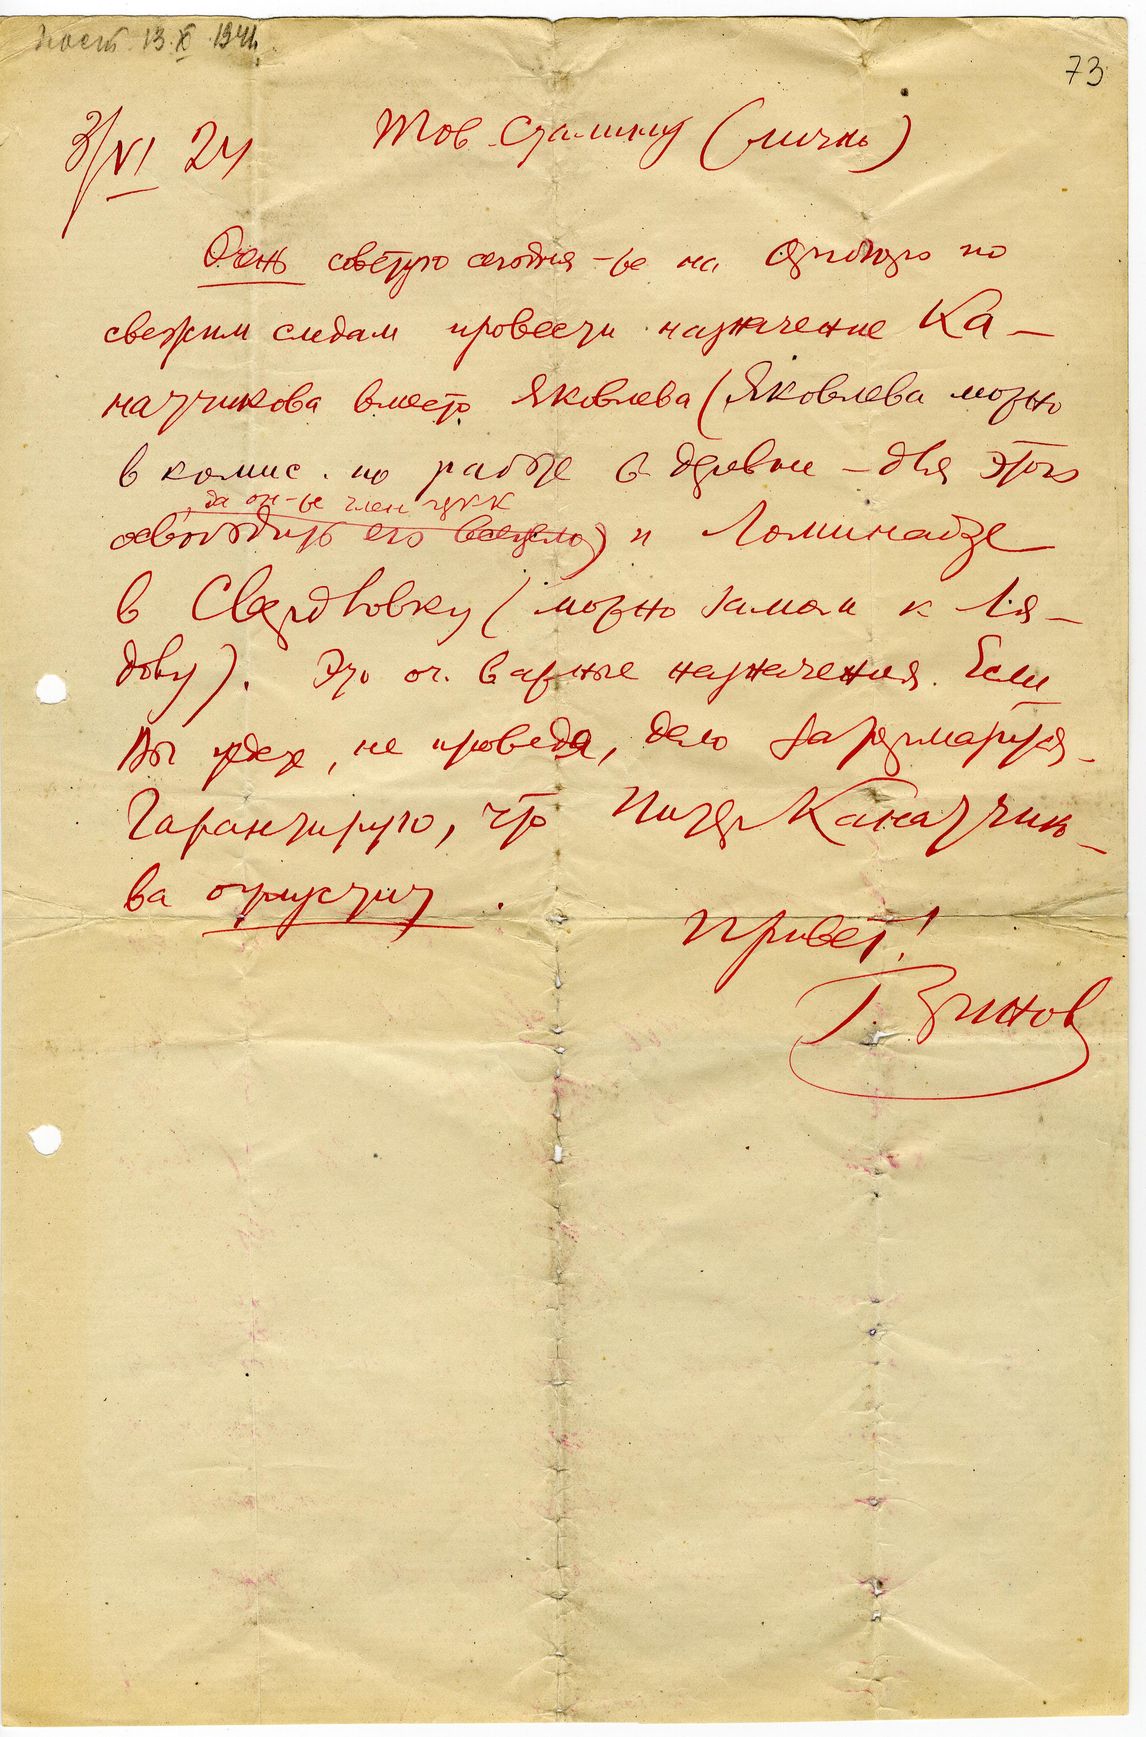 Пост. 13.X.1941.
73
3/VI 24
Тов Сталину (лично)
Очень советую сегодня-же на Оргбюро по
свежим следам провести назначение Ка-
натчикова вместо Яковлева (Яковлева можно
в комис. по работе в деревне – для этого
, да он-же член ЦКК
освободить его всецело) и Ломинадзе
в Свердловку (можно замом к Ля-
дову). Это оч. важные назначения. Если
Вы уедете, не проведя, дело
Гарантирую, что Питер Канатчико-
ва отпустит.
Привет!
Г. Зинов